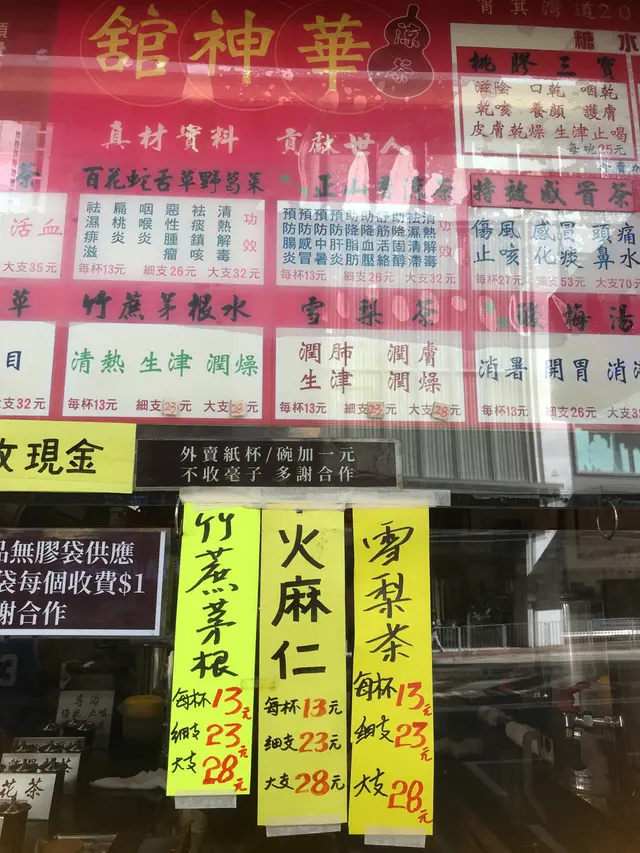 華神舘
涼茶
筲箕灣道20
糖水
桃膠三寶
滋陰 口乾 咽乾
乾咳 養顏 護膚
皮膚乾燥 生津止喝
每碗25元
真材實料 貢獻世人
茶
活血
大支35元
百花蛇舌草野葛菜
功效
清熱解毒
祛痰鎮咳
惡性腫瘤
咽喉炎
扁桃炎
祛濕痱滋
每杯13元 細支26元 大支32元
茶
功效
清熱解毒
祛濕清滯
助降固醇
舒筋活絡
助降血壓
助降脂肪
預防肝炎
預防中暑
預防感冒
預防腸炎
每杯13元 細支26元 大支32元
特效感冒茶
傷風 感冒 頭痛
止咳 化痰 鼻水
每杯27元 細支53元 大支70元
草
目
支32元
竹蔗茅根水
清熱 生津 潤燥
每杯13元 細支23元 大支28元
雪梨茶
潤肺 潤膚
生津 潤燥
每杯13元 細支23元 大支28元
酸梅湯
消暑 開胃 消
每杯13元 細支26元
收現金
外賣紙杯/碗加一元
不收毫子 多謝合作
品無膠袋供應
袋每個收費$1
謝合作
竹蔗茅根
每杯13元
細支23元
大支28元
火麻仁
每杯13元
細支23元
大支28元
雪梨茶
每杯13元
細支23元
大支28元
花茶